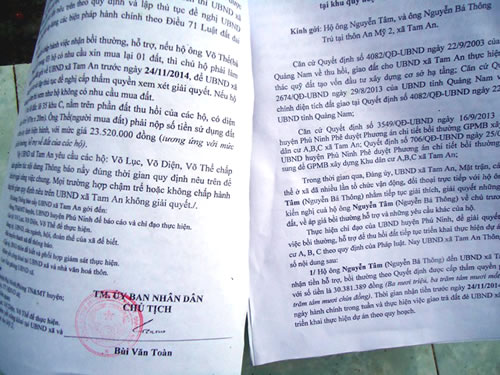 nếu trên theo quy định và lập thủ tục đề nghị UBND
các biện pháp hành chính theo Điều 71 Luật đất đai
việc nhận bồi thường, hỗ trợ, nếu hộ ông Võ Thế
có nhu cầu xin mua lại 01 đất, thì chủ hộ phải làm
UBND xã Tam An trước ngày 24/11/2014, để UBND xã
đề nghị cấp thẩm quyền xem xét giải quyết. Nếu hộ
như hộ không có nhu cầu mua đất.
lô 35 khu C, nằm trên phần đất thu hồi của các hộ, có diện
Ông Thế(người mua đất) phải nộp số tiền sử dụng đất
với mức giá 23.520.000 đồng (tương ứng với mức
của các hộ)
UBND xã Tam An yêu cầu các hộ: Võ Lục, Võ Diện, Võ Thế chấp
nội dung Thông báo này đúng thời gian quy định nêu trên để
công việc chung. Mọi trường hợp chậm trễ hoặc không chấp hành
quy định nêu trên UBND xã Tam An không giải quyết./.
UBND xã Tam An gởi đến:
UBND huyện Phú Ninh để báo cáo và chỉ đạo thực hiện.
TM. ỦY BAN NHÂN DÂN
CHỦ TỊCH
Bùi Văn Toàn
tại khu
Kính gửi: Hộ ông Nguyễn Tâm, và ông Nguyễn Bá Thông
Trú tại thôn An Mỹ 2, xã Tam An.
Căn cứ Quyết định số 4082/QĐ-UBND ngày 22/9/2003 của
Quảng Nam về thu hồi, giao đất cho UBND xã Tam An thực hiện
thác quỹ đất tạo vốn đầu tư xây dựng cơ sở hạ tầng; Căn cứ
2674/QĐ-UBND ngày 29/8/2013 của UBND tỉnh Quảng Nam
chỉnh diện tích đất giao tại Quyết định số 4082/QĐ-UBND ngày 22/
UBND tỉnh Quảng Nam;
Căn cứ Quyết định số 3549/QĐ-UBND ngày 16/9/2013
huyện Phú Ninh Phê duyệt Phương án chi tiết bồi thường GPMB
dân cư A,B,C xã Tam An; Quyết định số 706/QĐ-UBND ngày
UBND huyện Phú Ninh Phê duyệt Phương án chi tiết bồi thường
sung để GPMB xây dựng Khu dân cư A,B,C xã Tam An;
Trong thời gian qua, Đảng ủy, UBND xã Tam An, Mặt trận, các
thể ở xã đã nhiều lần tổ chức vận động, đối thoại trực tiếp với hộ ông
Tâm (Nguyễn Bá Thông) nhằm tiếp tục giải thích, giải quyết những
kiến nghị của hộ ông Nguyễn Tâm (Nguyễn Bá Thông) về chủ trương
đất, về áp giá bồi thường hỗ trợ và những yêu cầu khác của hộ.
Thực hiện chỉ đạo của UBND huyện Phú Ninh, để giải quyết
việc bồi thường, hỗ trợ để thu hồi đất tiếp tục triển khai thực hiện dự án
cư A, B, C theo quy định của Pháp luật. Nay UBND xã Tam An Thông
số nội dung sau:
1/ Hộ ông Nguyễn Tâm (Nguyễn Bá Thông) đến UBND xã T
nhận tiền hỗ trợ, bồi thường theo Quyết định được cấp thẩm quyền
với số tiền là 30.381.389 đồng (Ba mươi triệu, ba trăm tám mươi mốt
trăm tám mươi chín đồng). Thời gian nhận tiền trước ngày 24/11/2014
ngày hành chính trong tuần và thực hiện việc giao trả đất để UBND
triển khai thực hiện dự án theo quy hoạch.